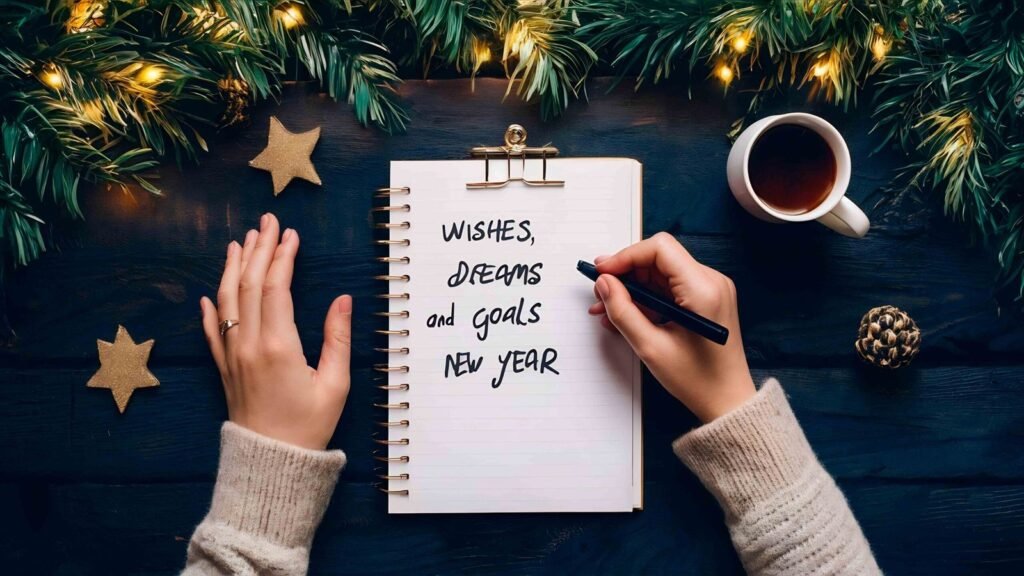 WISHES,
DREAMS
and GOALS
NEW YEAR